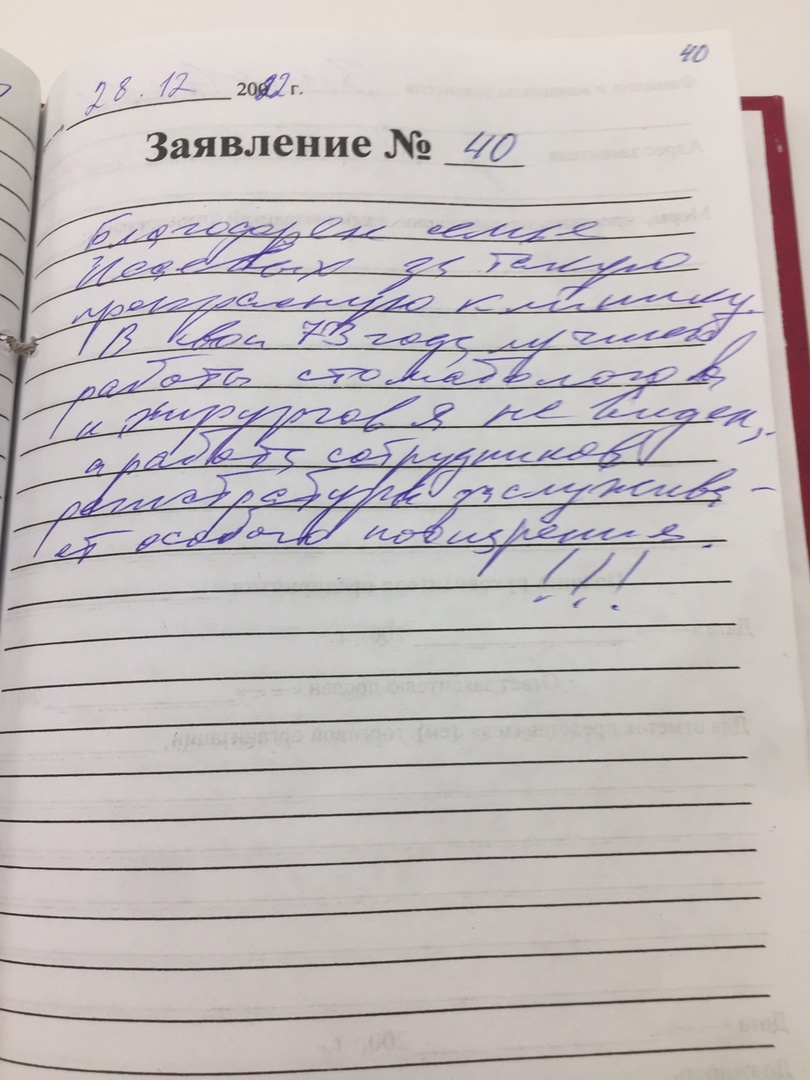 40
28.12 2022 г.
Заявление № 40
Благодарен семье
за такую
прекрасную клинику.
В свои 73 года лучшей
работы стоматологов
и хирургов я не видел,
а работа сотрудников
регистратуры заслужива-
ет особого поощрения.
!!!